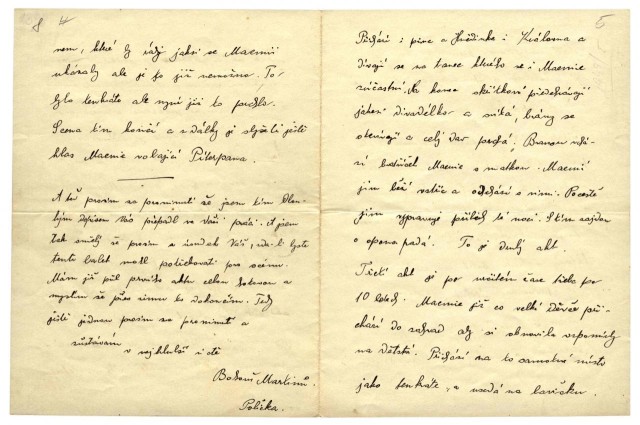 8 4
nem, které by rády jaksi se Maemii
ukázaly ale je to již nemožno. To
bylo tenkráte ale nyní již to prchlo.
Scena tím končí a z dálky je slyšeti ještě
hlas Maemie volající Piterpana.
A teď prosím za prominutí že jsem tím
dopisem Vás přepadl ve Vaší práci. A jsem
tak smělý že prosím o úsudek Váš, zda-li byste
tento balet mohl potřebovati pro scenu.
Mám již půl prvního aktu celkem hotovou a
myslím že přes zimu to dokončím. Tedy
ještě jednou prosím za prominutí a
zůstávám
v nejhlubší úctě
Bohouš Martinů.
Polička.
5
Přichází i princ a Sněženka i Královna a
dívají se na tance kterého se i Maemie
zúčastní. Na konec skřítkové předvádějí
jakési divadélko a zniká, brány se
otevírají a celý dav prchá. Branou
Maemie s matkou. Maemii
jim běží vstříc a odchází s nimi. Po cestě
jim vypravuje příběh té noci. S tím zajdou
a opona padá. To je druhý akt.
Třetí akt je po určitém čase třeba po
10 letech. Maemie již co velké děvče při-
chází do zahrad aby si obnovila vzpomínky
na dětství. Přichází na to samotné místo
jako tenkráte, a usedá na lavičku.